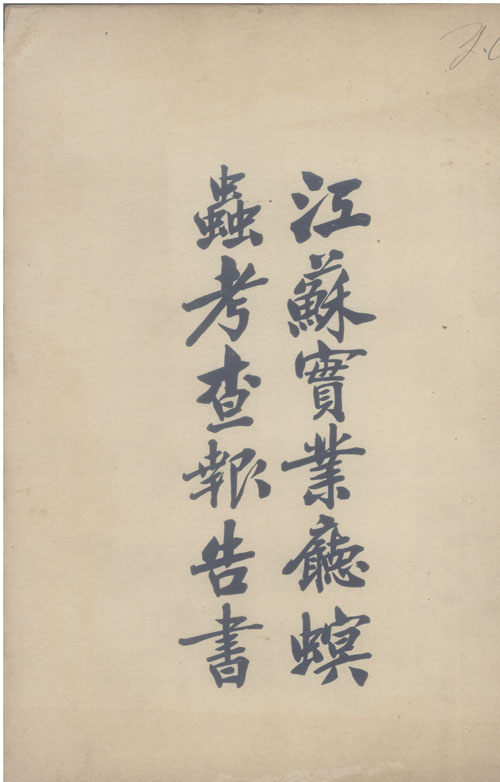 江蘇實業廳螟
蟲考查報告書